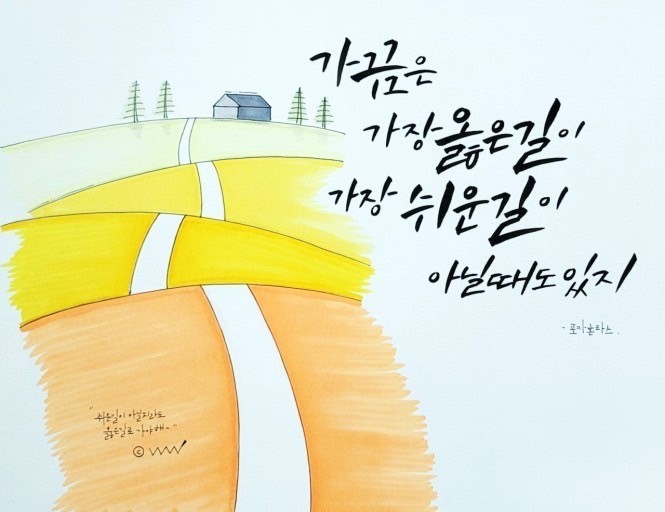 가끔은
가장 옳은 길이
가장 쉬운 길이
아닐때도 있지
- 포카혼타스.
"쉬운길이 아닐지라도
옳은길로 가야해~"
ⓒ